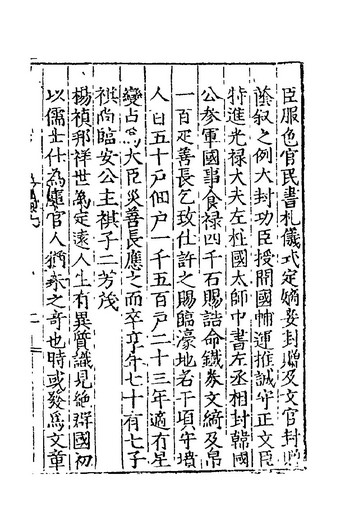 臣服色官民書札儀式定嫡妾封贈及文官封
蔭叙之例大封功臣授開國輔運推誠守正文臣
特進光禄大夫左柱國太師中書左丞相封韓國
公参軍國事食禄四千石賜誥命鐵券文綺及帛
一百疋善長乞致仕許之賜臨濠地若干頃守墳
人日五十戸佃戸一千五百戸二十三年適有星
變占為大臣災善長應之而卒享年七十有七子
祺尚臨安公主祺子二芳茂
楊禎邦祥世為定遠人生有異質識見絶群國初
以儒士仕為官人稱之奇也時或發為文章